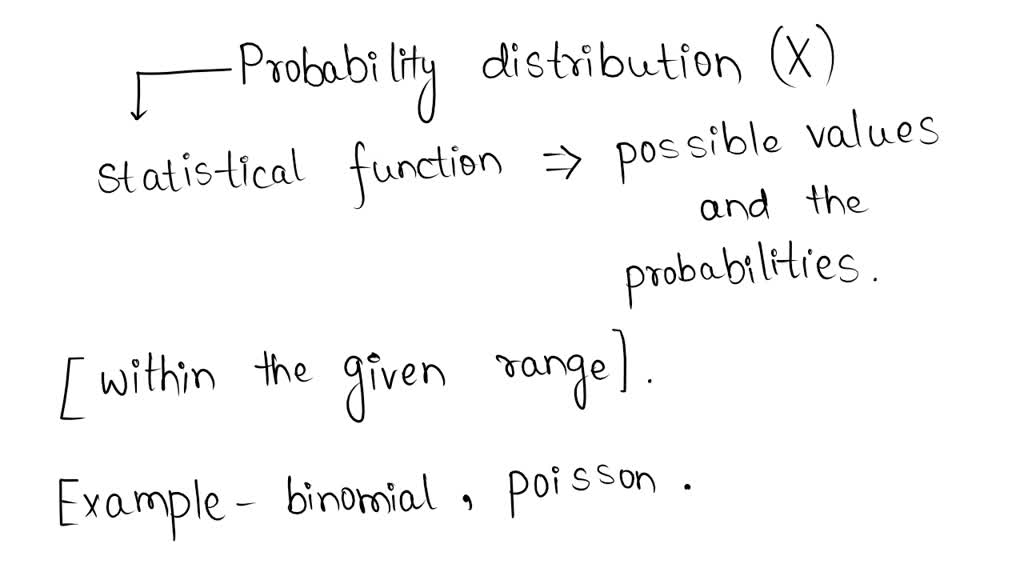 Probability distribution (X)
statistical function ⇒ possible values
and the
probabilities.
[within the given range].
Example - binomial, poisson.